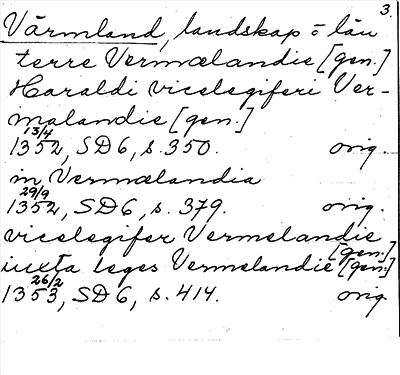 3.
Värmland, landskap o län
terre Vermælandie [gen.]
Haraldi vicelegiferi Ver-
malandie [gen.]
13/4
1352, SD 6, s. 350. orig.
in Vermælandia
29/9
1352, SD 6, s. 379. orig.
vicelegifer Vermelandie
[gen.]
iuxta leges Vermelandie [gen.]
26/2
1353, SD 6, s. 414. orig.